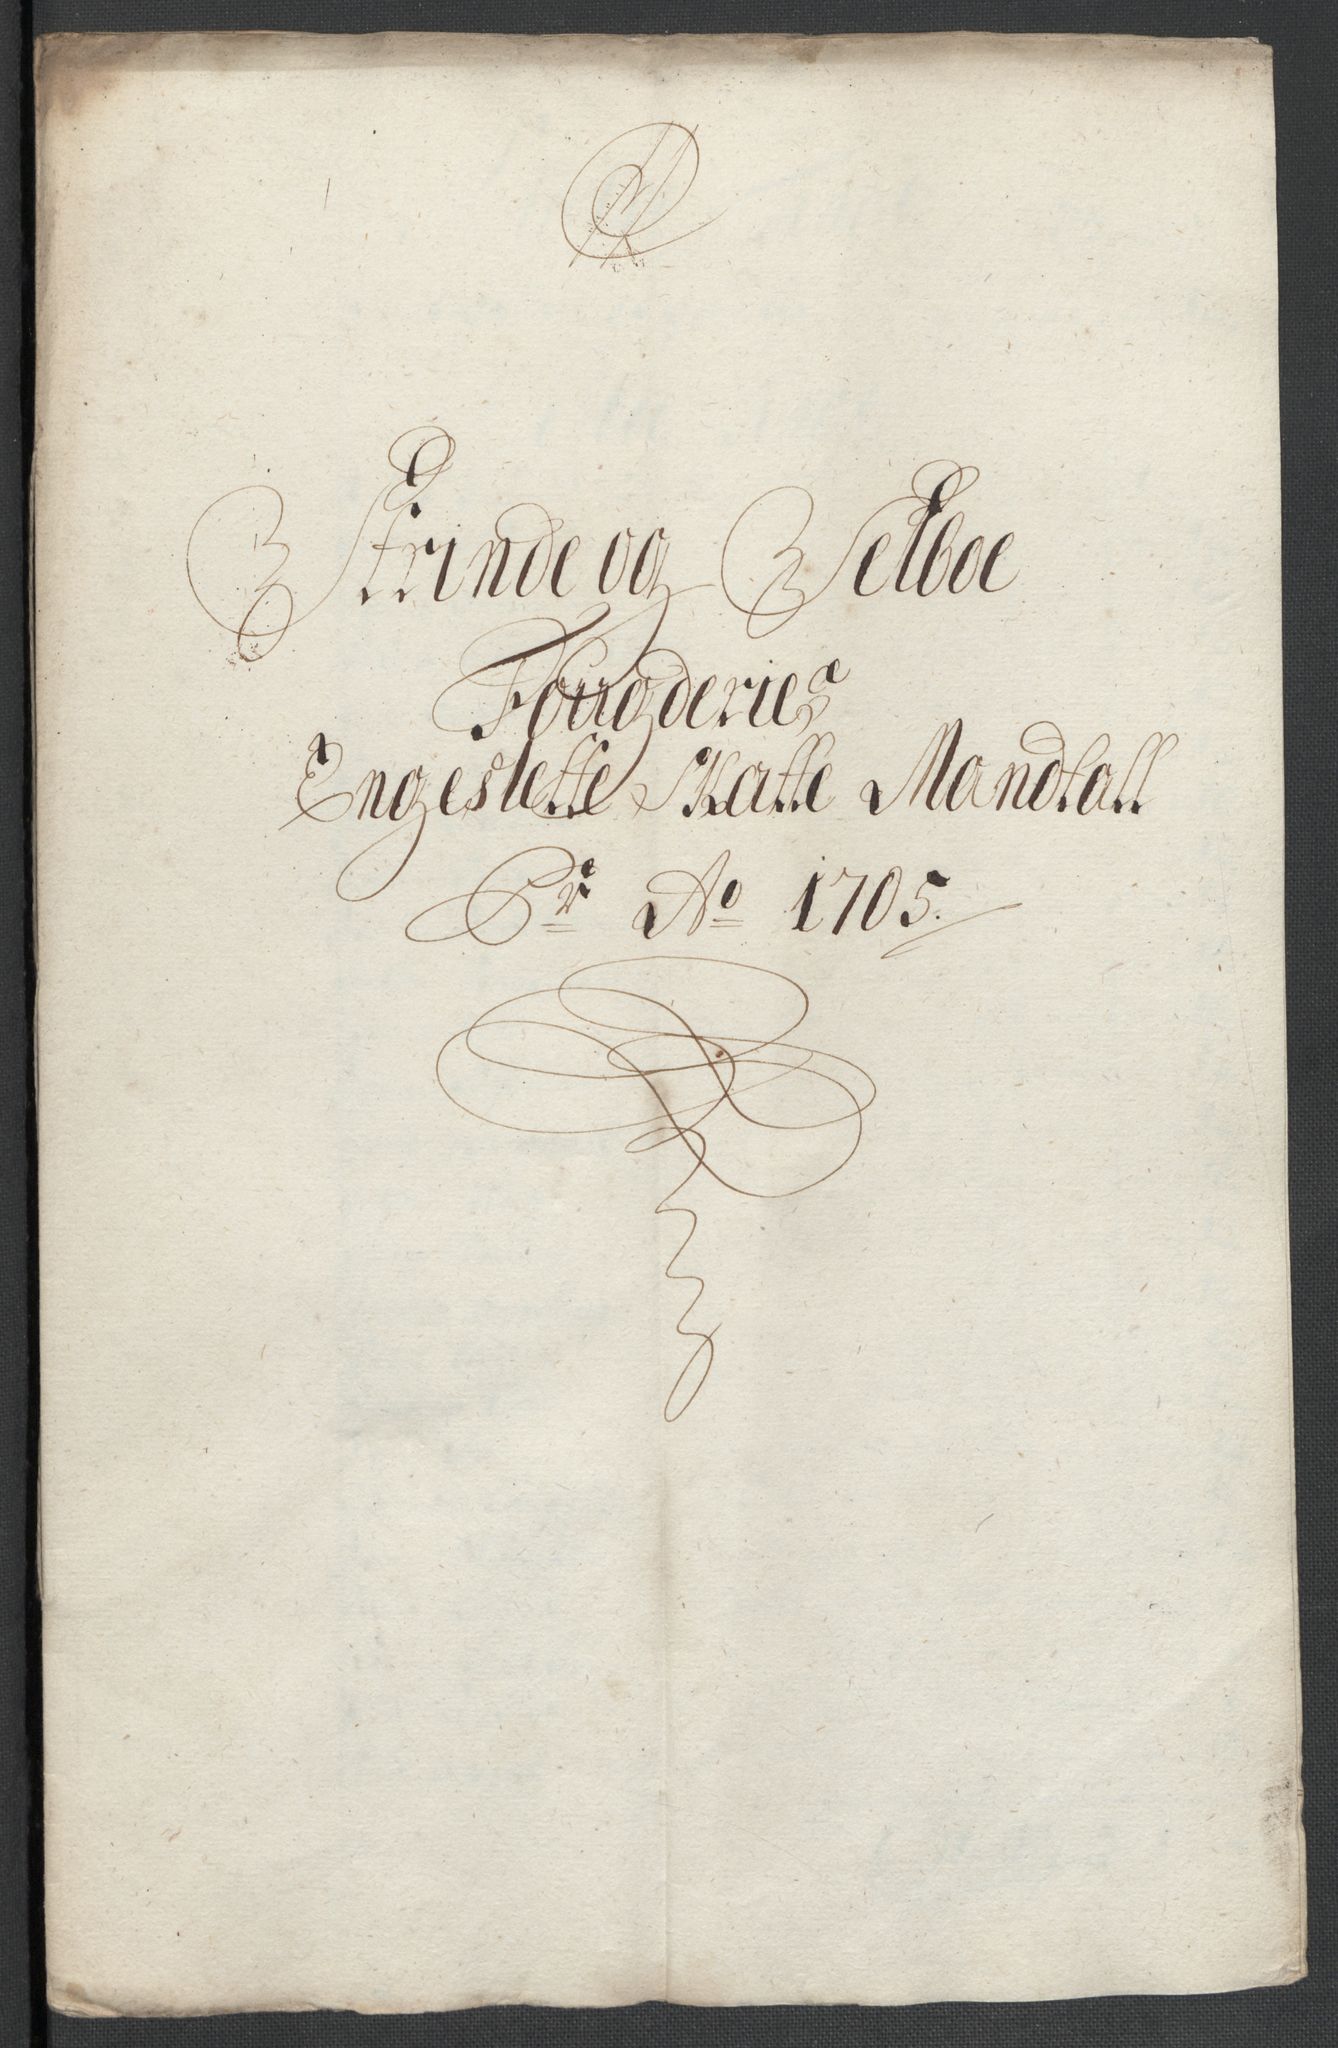 Strinde og Selboe
Fougderies
Engeslette Skatte Mandtall
Pr Ao 1705.